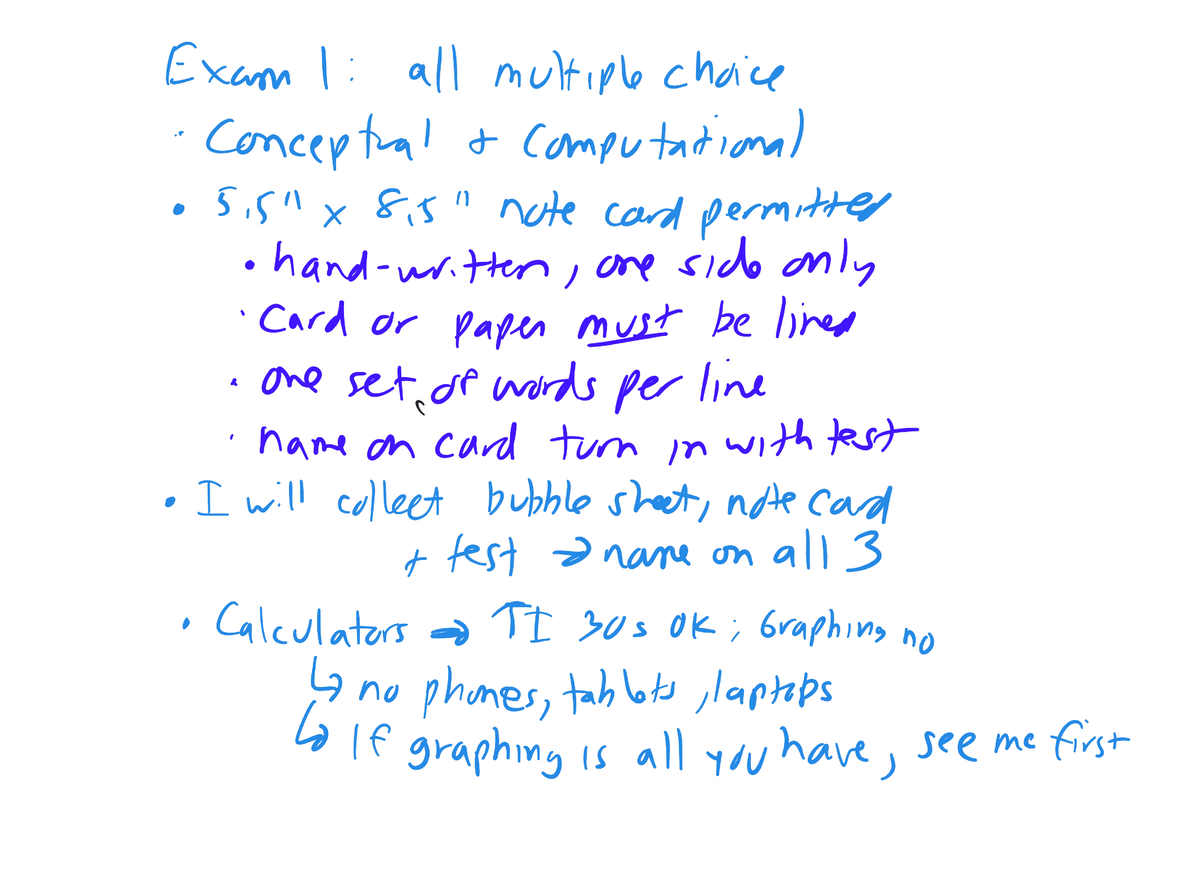 Exam 1: all multiple choice
• Conceptual + Computational
• 5.5" x 8.5" note card permitted
• hand-written, one side only
• Card or paper must be lined
• one set of words per line
• name on card turn in with test
• I will collect bubble sheet, note card
+ test → name on all 3
• Calculators → TI 30s OK; Graphing no
↳ no phones, tablets, laptops
↳ If graphing is all you have, see me first